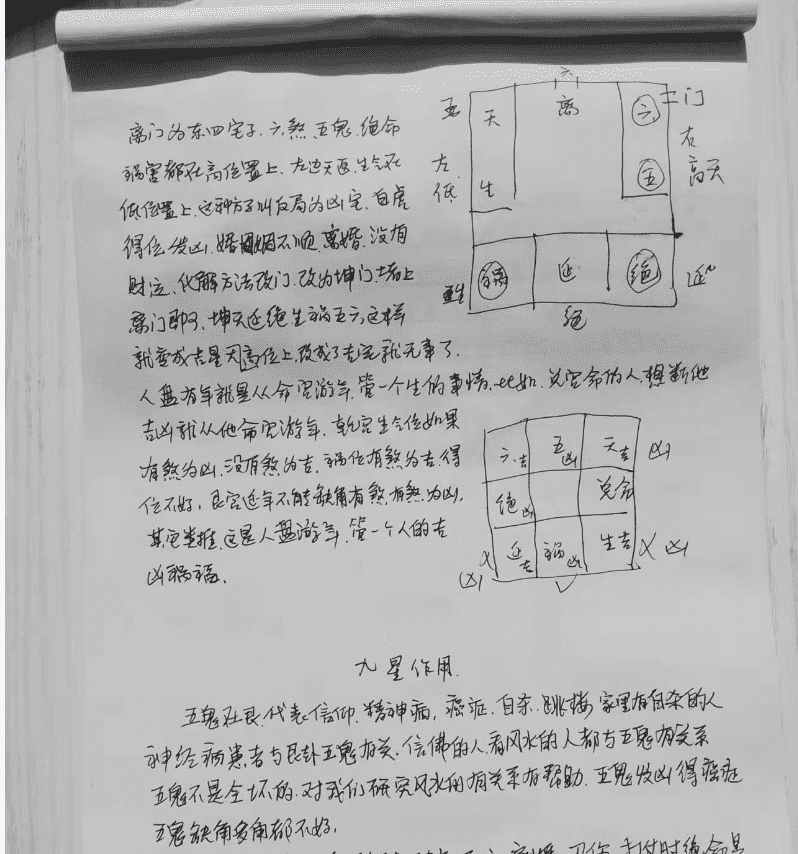 离门为东四宅子.六煞.五鬼.绝命
祸害都在高位置上.左边天医.生气在
低位置上.这种房子叫反局为凶宅.白虎
得位发凶.婚姻不顺.离婚.没有
财运.化解方法改门.改为坤门.堵上
离门即可.坤天延绝生祸五六.这样
就变成吉星天高位上.改成了吉宅就无事了.
人盘有年就是从命宫游年.管一个生的事情.比如.兑宫命的人.想断他
吉凶就从他命宫游年.乾宫生气位如果
有煞为凶.没有煞为吉.祸位有煞为吉.得
位不好.艮宫延年不能缺角有煞.有煞为凶.
其它类推.这是人盘游年.管一个人的吉
凶祸福.
六
五 天 离 六 门
左 右
低 生 五 高天
祸 延 绝 延
绝
六吉 五凶 天吉 凶
绝凶 兑命
X 延吉 祸凶 生吉 X 凶
凶
九星作用.
五鬼在艮.代表信仰.精神病,癌症.自杀.跳楼 家里有自杀的人
神经病患者与艮卦五鬼有关.信佛的人.看风水的人都与五鬼有关系
五鬼不是全坏的.对我们研究风水的有关系有帮助.五鬼发凶得癌症
五鬼缺角多角都不好.